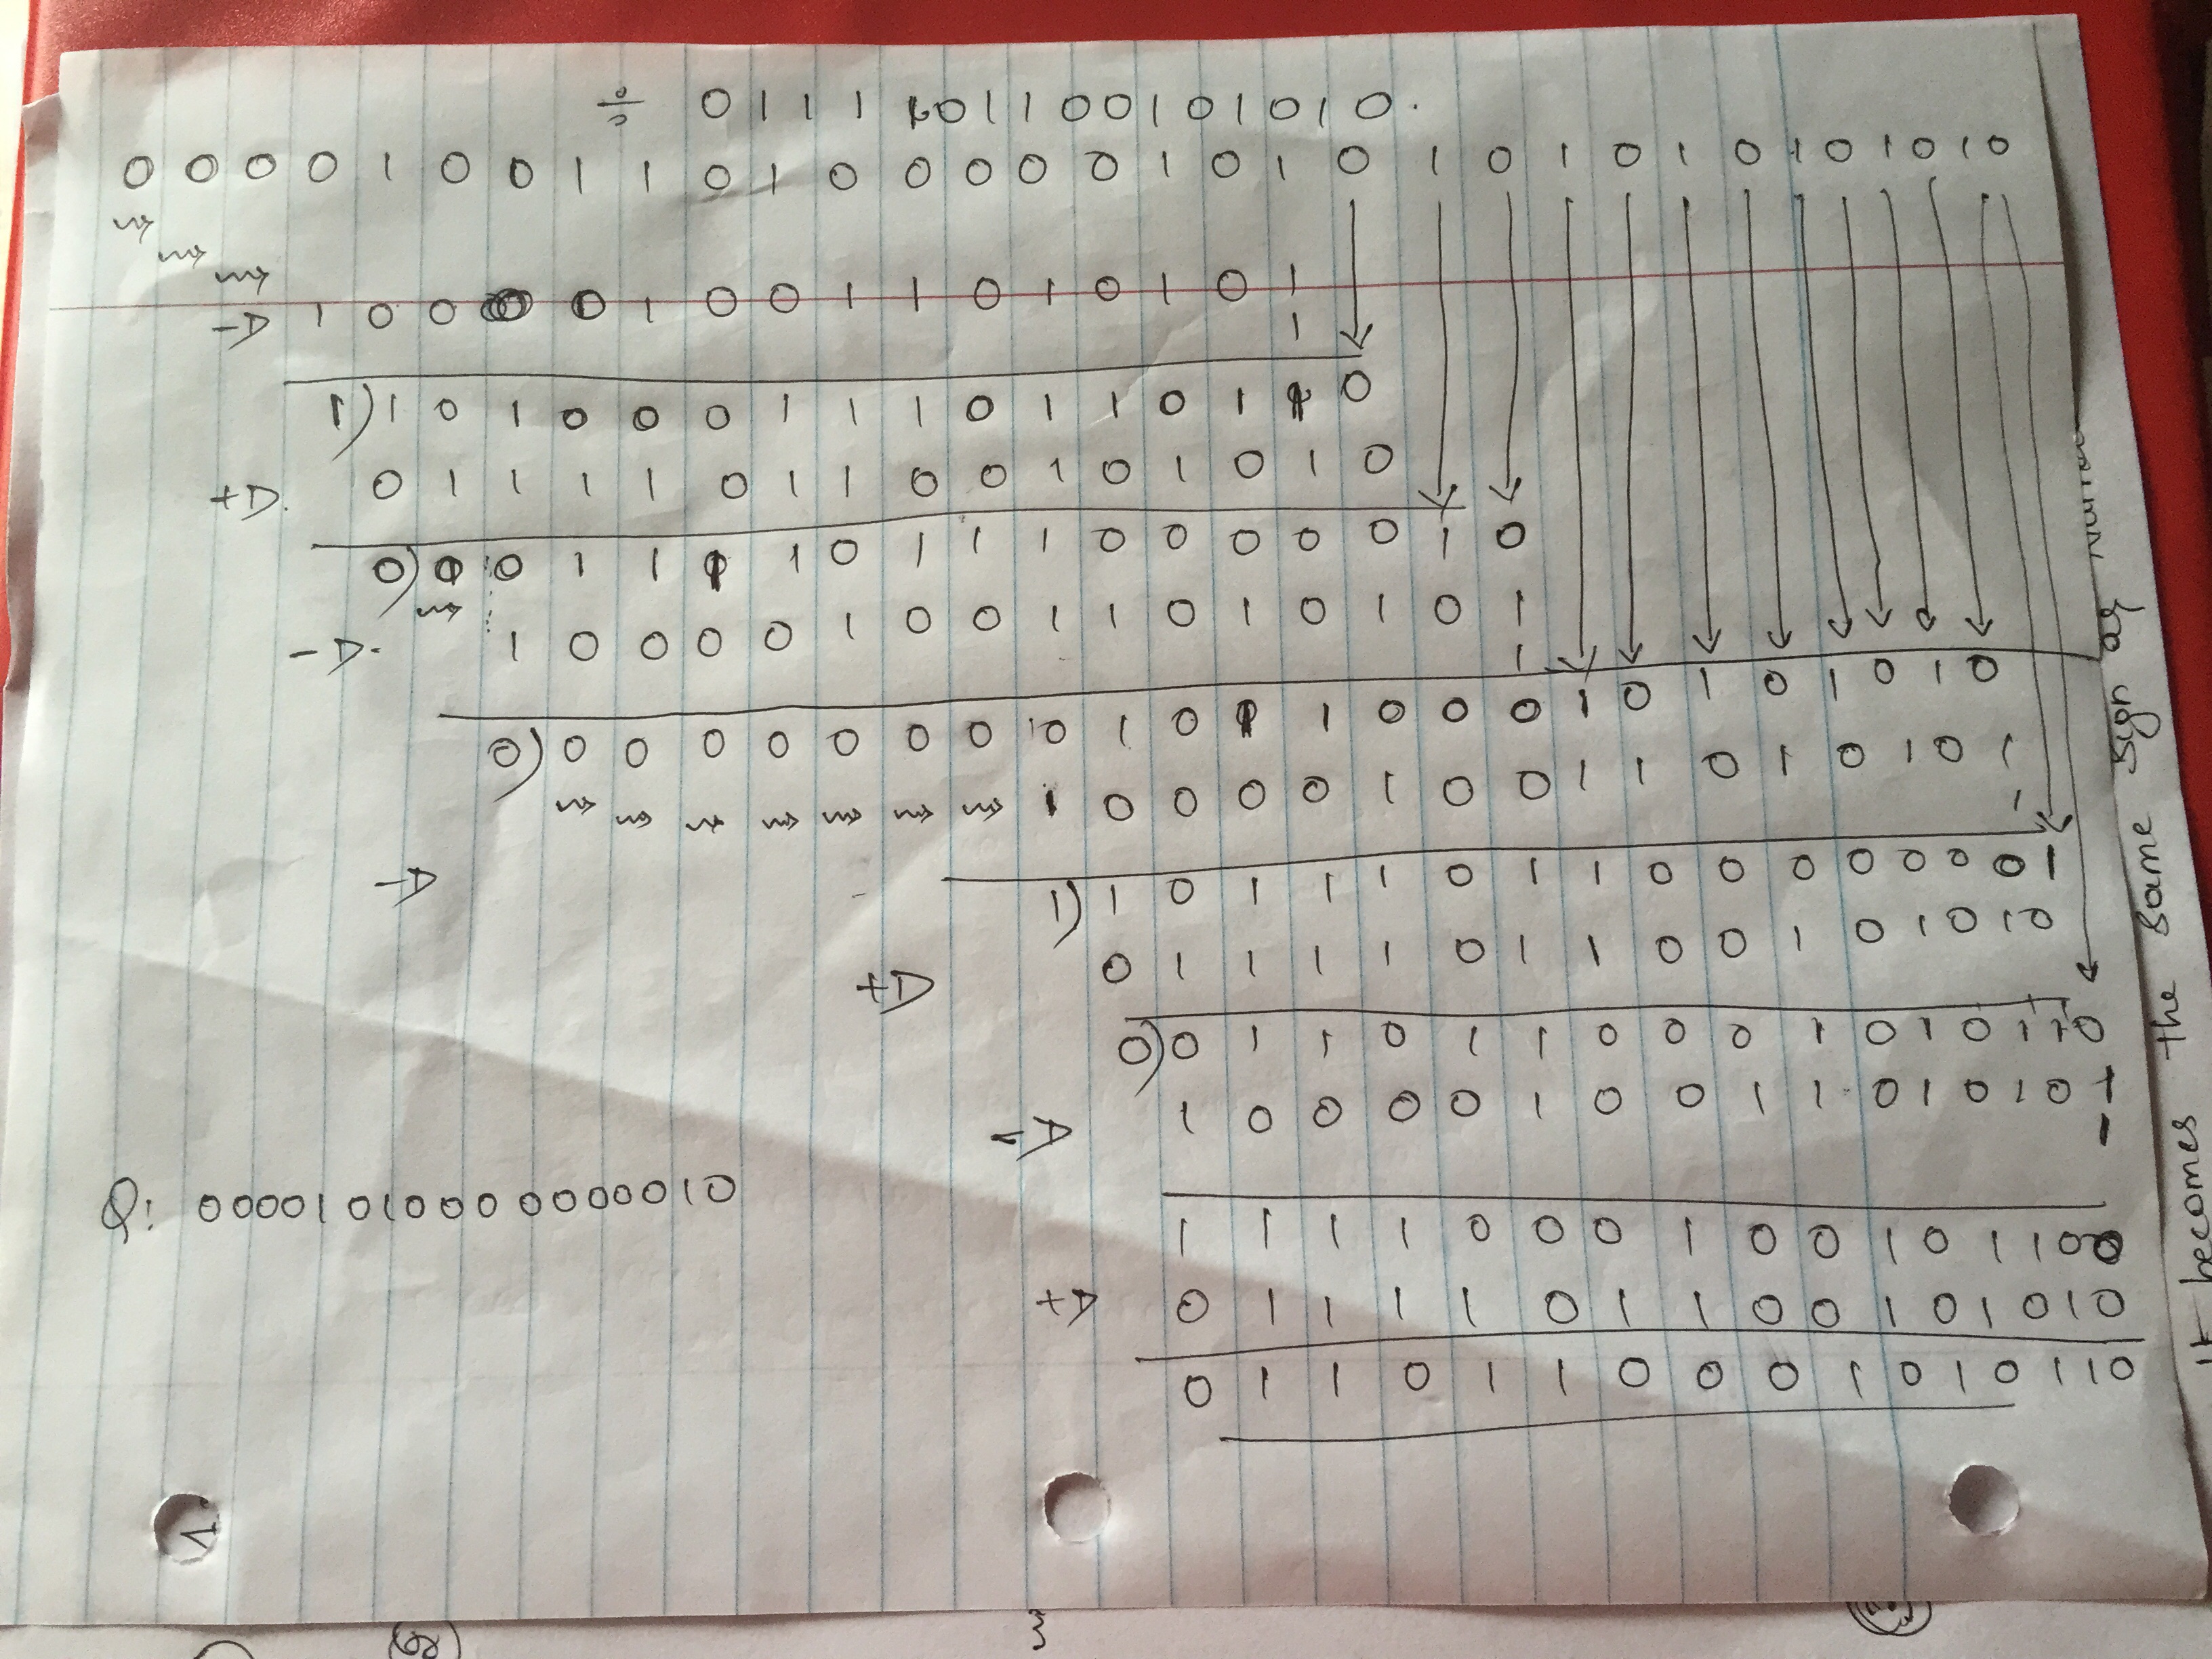 ÷ 0 1 1 1 1 0 1 1 0 0 1 0 1 0 1 0 .
0 0 0 0 1 0 0 1 1 0 1 0 0 0 0 0 1 0 1 0 1 0 1 0 1 0 1 0 1 0 1 0
-D 1 0 0 0 0 1 0 0 1 1 0 1 0 1 0 1
1
1) 1 0 1 0 0 0 1 1 1 0 1 1 0 1 1 0
+D. 0 1 1 1 1 0 1 1 0 0 1 0 1 0 1 0
0) 0 0 1 1 1 1 0 1 1 1 0 0 0 0 0 1 0
-D. 1 0 0 0 0 1 0 0 1 1 0 1 0 1 0 1
1
0) 0 0 0 0 0 0 0 0 1 0 1 1 0 0 0 1 0 1 0 1 0 1 0
1 0 0 0 0 1 0 0 1 1 0 1 0 1 0 1
-D
1) 1 0 1 1 1 0 1 1 0 0 0 0 0 0 0 1
+D 0 1 1 1 1 0 1 1 0 0 1 0 1 0 1 0
0) 0 1 1 0 1 1 0 0 0 1 0 1 0 1 1 0
-D 1 0 0 0 0 1 0 0 1 1 0 1 0 1 0 1
Q: 0 0 0 0 1 0 1 0 0 0 0 0 0 0 0 1 0
1 1 1 1 0 0 0 1 0 0 1 0 1 1 0 0
+D 0 1 1 1 1 0 1 1 0 0 1 0 1 0 1 0
0 1 1 0 1 1 0 0 0 1 0 1 0 1 1 0
It becomes the same sign as